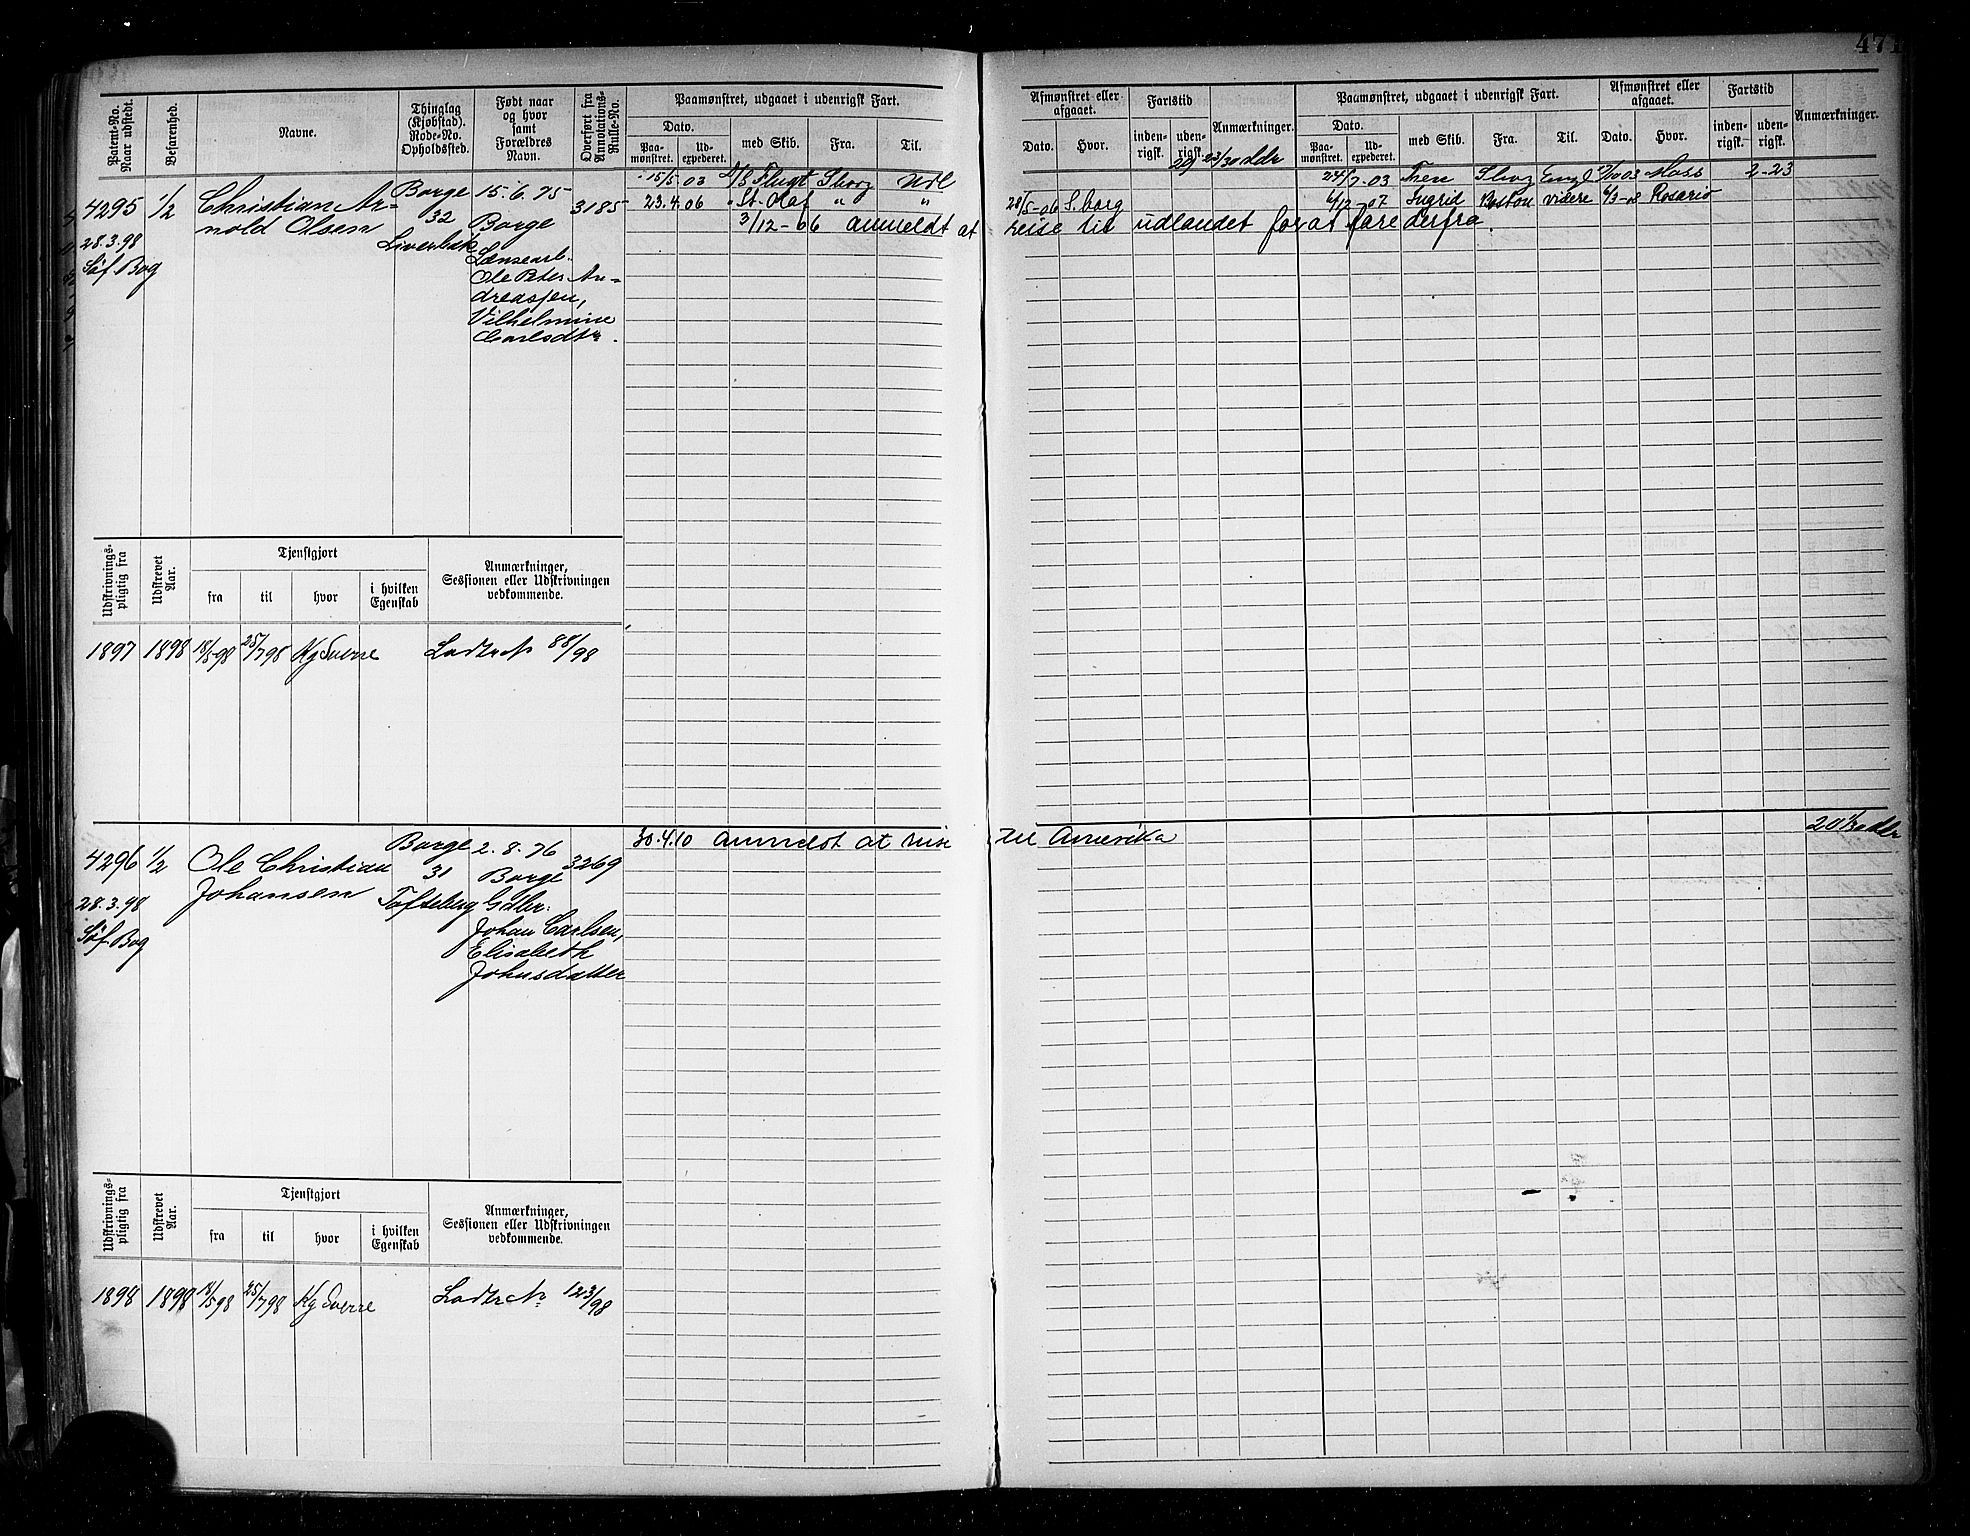 471
Patent-No. Naar udstedt.
Befarenhed.
Navne.
Thinglag (Kjøbstad). Rode-No. Opholdssted.
Født naar og hvor samt Forældres Navn.
Overført fra Annotations-Rulle-No.
Paamønstret, udgaaet i udenrigsk Fart.
Dato.
Paa-mønstret.
Ud-expederet.
med Skib.
Fra.
Til.
Afmønstret eller afgaaet.
Dato.
Hvor.
Fartstid
inden-rigsk.
uden-rigsk.
Anmærkninger.
Paamønstret, udgaaet i udenrigsk Fart.
Dato.
Paa-mønstret.
Ud-expederet.
med Skib.
Fra.
Til.
Afmønstret eller afgaaet.
Dato.
Hvor.
Fartstid
inden-rigsk.
uden-rigsk.
Anmærkninger.
4295
28.3.98
Søf. Bog
1/2
Christian Ar-
nold Olsen
Borge
32
15.6.75
Borge
Lænsearb.
Ole Peter An-
dreassen,
Vilhelmine
Carlsdtr.
3185
15/5 03 Flugt Sborg Udl
24/7-03 Sborg Engl Moss 2-23
23.4.06 " St. Olaf " "
28/5-06 S.borg
6/12 07 Ingrid Boston videre 6/3-08 Rosario
3/12-06 anmeldt at reise til udlandet for at fare derfra.
Udskrivnings-pligtig fra
Udskrevet Aar.
Tjenstgjort
fra
til
hvor
i hvilken Egenskab
Anmærkninger, Sessionen eller Udskrivningen vedkommende.
1897 1898 18/5-98 25/7 98 Kg Sverre Lodtr No 88/98
4296
28.3.98
Søf. Bog
1/2
Ole Christian
Johansen
Borge
31
Tofteberg
2.8.76
Borge
Gdbr.
Johan Carlsen,
Elisabeth
Johnsdatter
3269
30.4.10 anmeldt at reise til Amerika
Udskrivnings-pligtig fra
Udskrevet Aar.
Tjenstgjort
fra
til
hvor
i hvilken Egenskab
Anmærkninger, Sessionen eller Udskrivningen vedkommende.
1898 1898 25/7 98 Kg Sverre Lodtr No 123/98